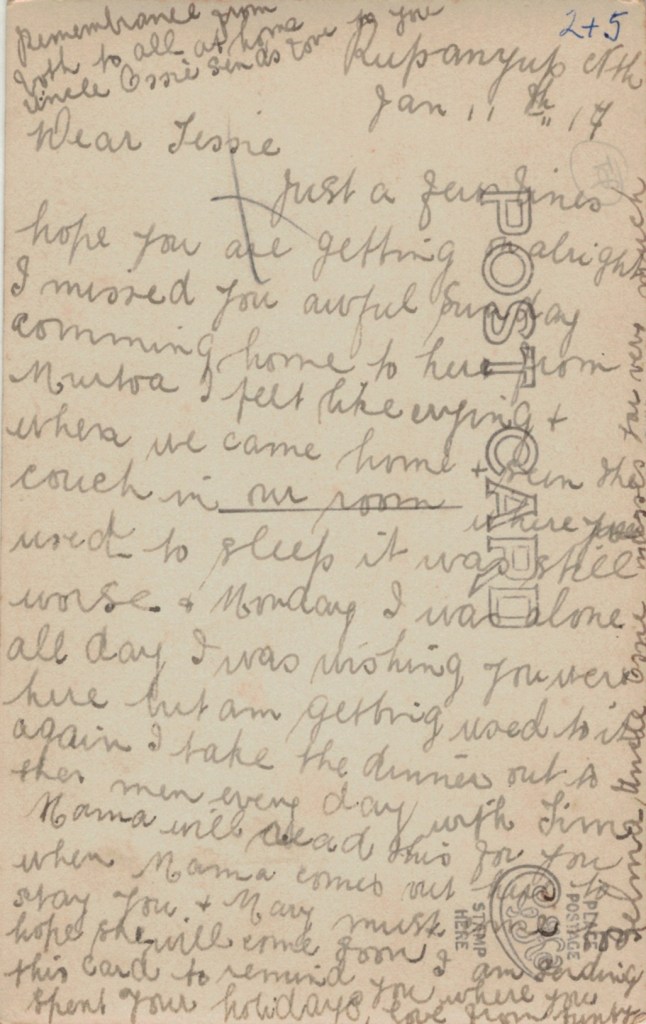 Remembrance from
both to all at home
Uncle Ossie sends love to you
2+5
Rupanyup Nth
Jan 11th 17
Dear Tessie
Just a few lines
hope you are getting alright
I missed you awful Sunday
comming home to here from
Murtoa I felt like crying +
when we came home + seen the
couch in our room where you
used to sleep it was still
worse. + Monday I was alone
all day I was wishing you were
here but am getting used to it
again I take the dinner out to
the men every day with Jim
Mama will read this for you
when Mama comes out here to
stay you + Mary must come too
hope she will come soon I am sending
this card to remind you where you
spent your holidays, love from Aunty
Selma, Uncle Ossie misses you very much
POST CARD
1 PENCE
POSTAGE
STAMP
HERE